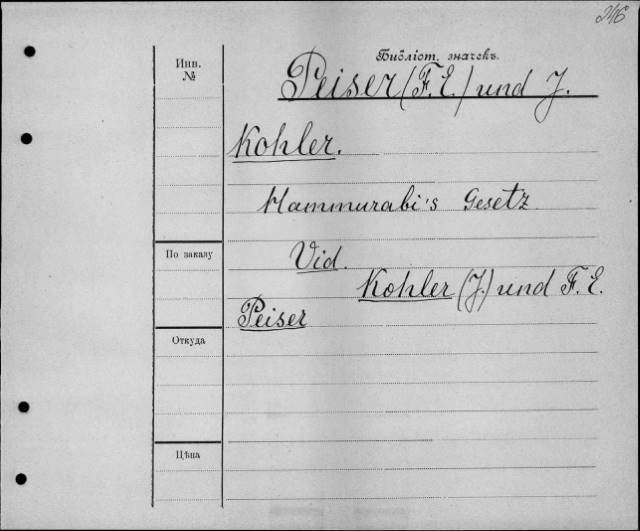 246
Библіот. значекъ.
Инв.
№
Peiser (F. E.) und J.
Kohler.
Hammurabi's Gesetz
Vid.
Kohler (J.) und F. E.
Peiser
По заказу
Откуда
Цѣна